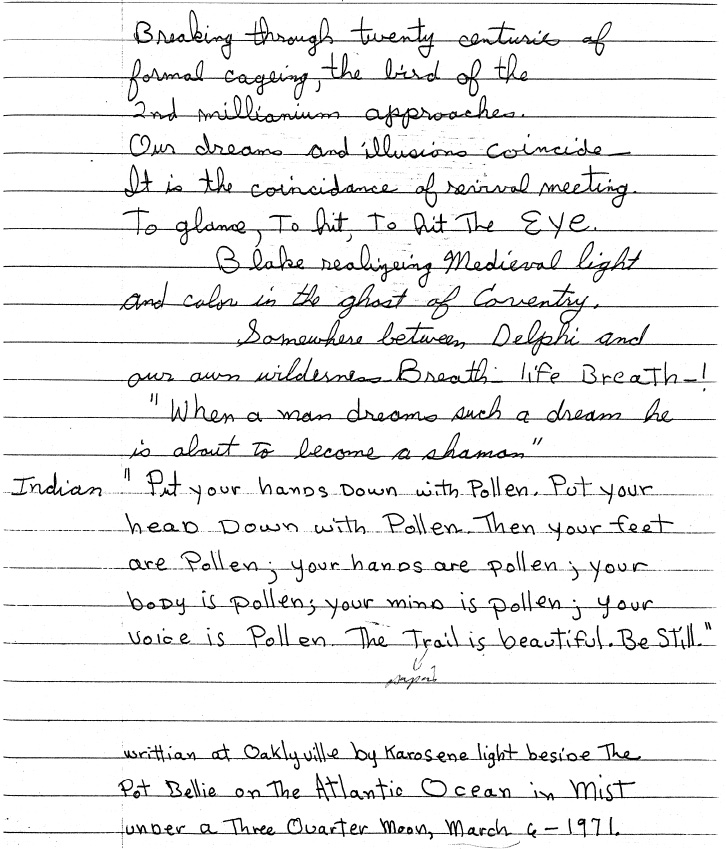 Breaking through twenty centurie of
formal cageing, the bird of the
2nd millianium approaches.
Our dreams and illusions coincide—
It is the coincidance of revival meeting.
To glance, To hit, To hit The EYE.
Blake realizeing Medieval light
and color in the ghost of Coventry.
Somewhere between Delphi and
our own wilderness Breath- life Breath-!
"When a man dreams such a dream he
is about to become a shaman"
Indian "Put your hands Down with Pollen. Put your
head Down with Pollen. Then your feet
are Pollen; your hands are pollen; your
body is pollen; your mind is pollen; your
voice is Pollen. The Trail is beautiful. Be Still."
writtian at Oaklyville by Karosene light beside The
Pot Bellie on The Atlantic Ocean in Mist
under a Three Quarter Moon, March 6-1971.